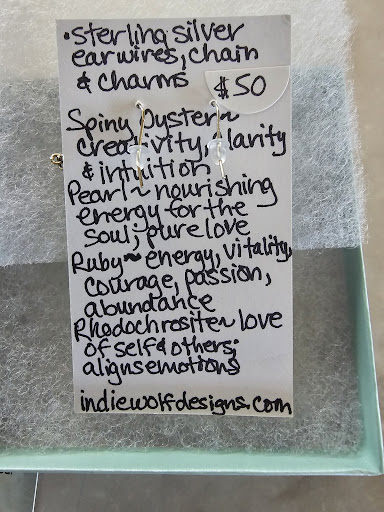 •Sterling silver
earwires, chain
& charms $50
Spiny Oyster~
creativity, clarity
& intuition
Pearl~nourishing
energy for the
soul; pure love
Ruby~energy, vitality,
courage, passion,
abundance
Rhodochrosite~love
of self & others;
aligns emotions
indiewolfdesigns.com